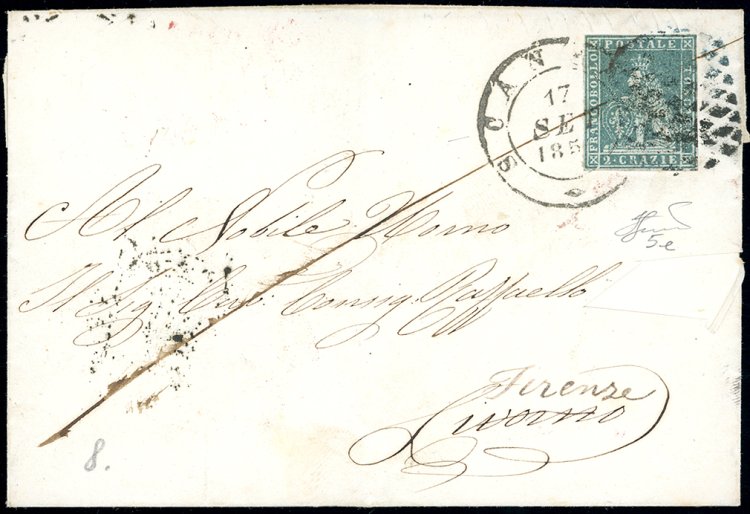 SCAN
17
SE
185
FRANCOBOLLO
POSTALE
TOSCANO
2·CRAZIE
Al Nobile Uomo
Il Sig Cav: Consig. Raffaello
Firenze
Livorno
5 e
8.